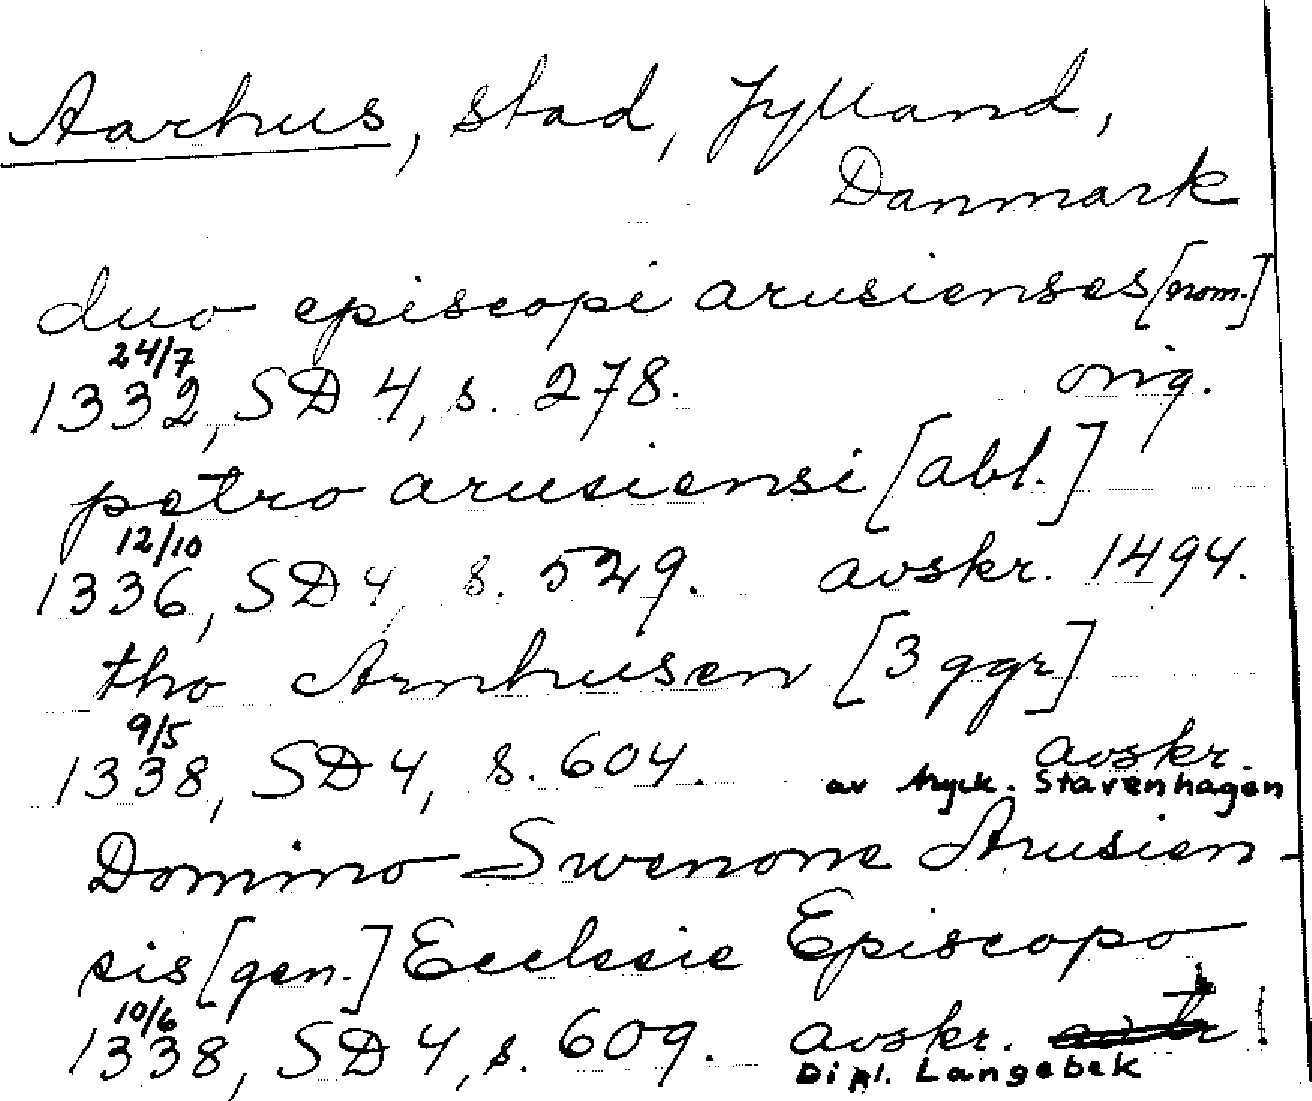 Aarhus, stad, Jylland,
Danmark
duo episcopi arusienses [nom.]
24/7
1332, SD 4, s. 278. orig.
petro arusiensi [abl.]
12/10
1336, SD 4, s. 529. avskr. 1494.
tho Arnhusen [3 ggr]
9/5
1338, SD 4, s. 604. avskr.
av tryck. Stavenhagen
Domino Swenone Arusien-
sis [gen.] Ecclesie Episcopo
10/6
1338, SD 4, s. 609. avskr. !
Dipl. Langebek